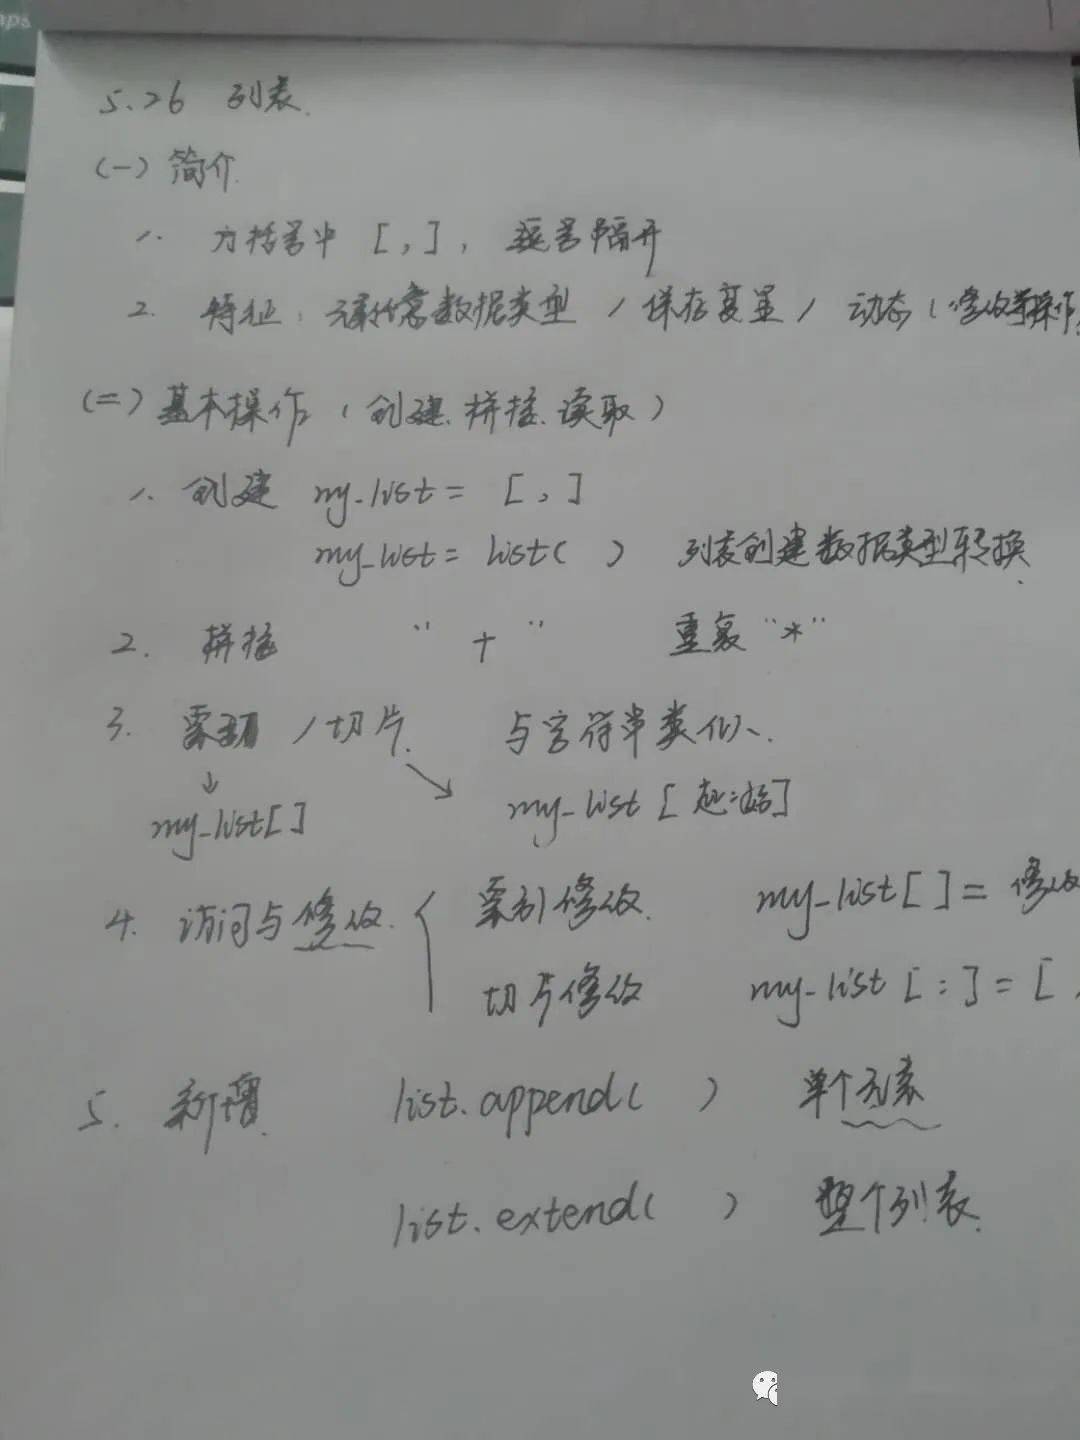 aps
5.26 列表.
(一) 简介.
1. 方括号中 [,], 逗号隔开
2. 特征: 任意数据类型 / 保存变量 / 动态 (修改等操作
(二) 基本操作 (创建.拼接.读取)
1. 创建 my_list = [,]
my_list = list( ) 列表创建数据类型转换.
2. 拼接 " + " 重复 "*"
3. 索引 / 切片. 与字符串类似.
↓ ↘
my_list[] my_list [起:始]
4. 访问与修改.
索引修改. my_list[] = 修改
切片修改 my_list [:] = [ ,
5. 新增. list.append( ) 单个元素
list.extend( ) 整个列表.